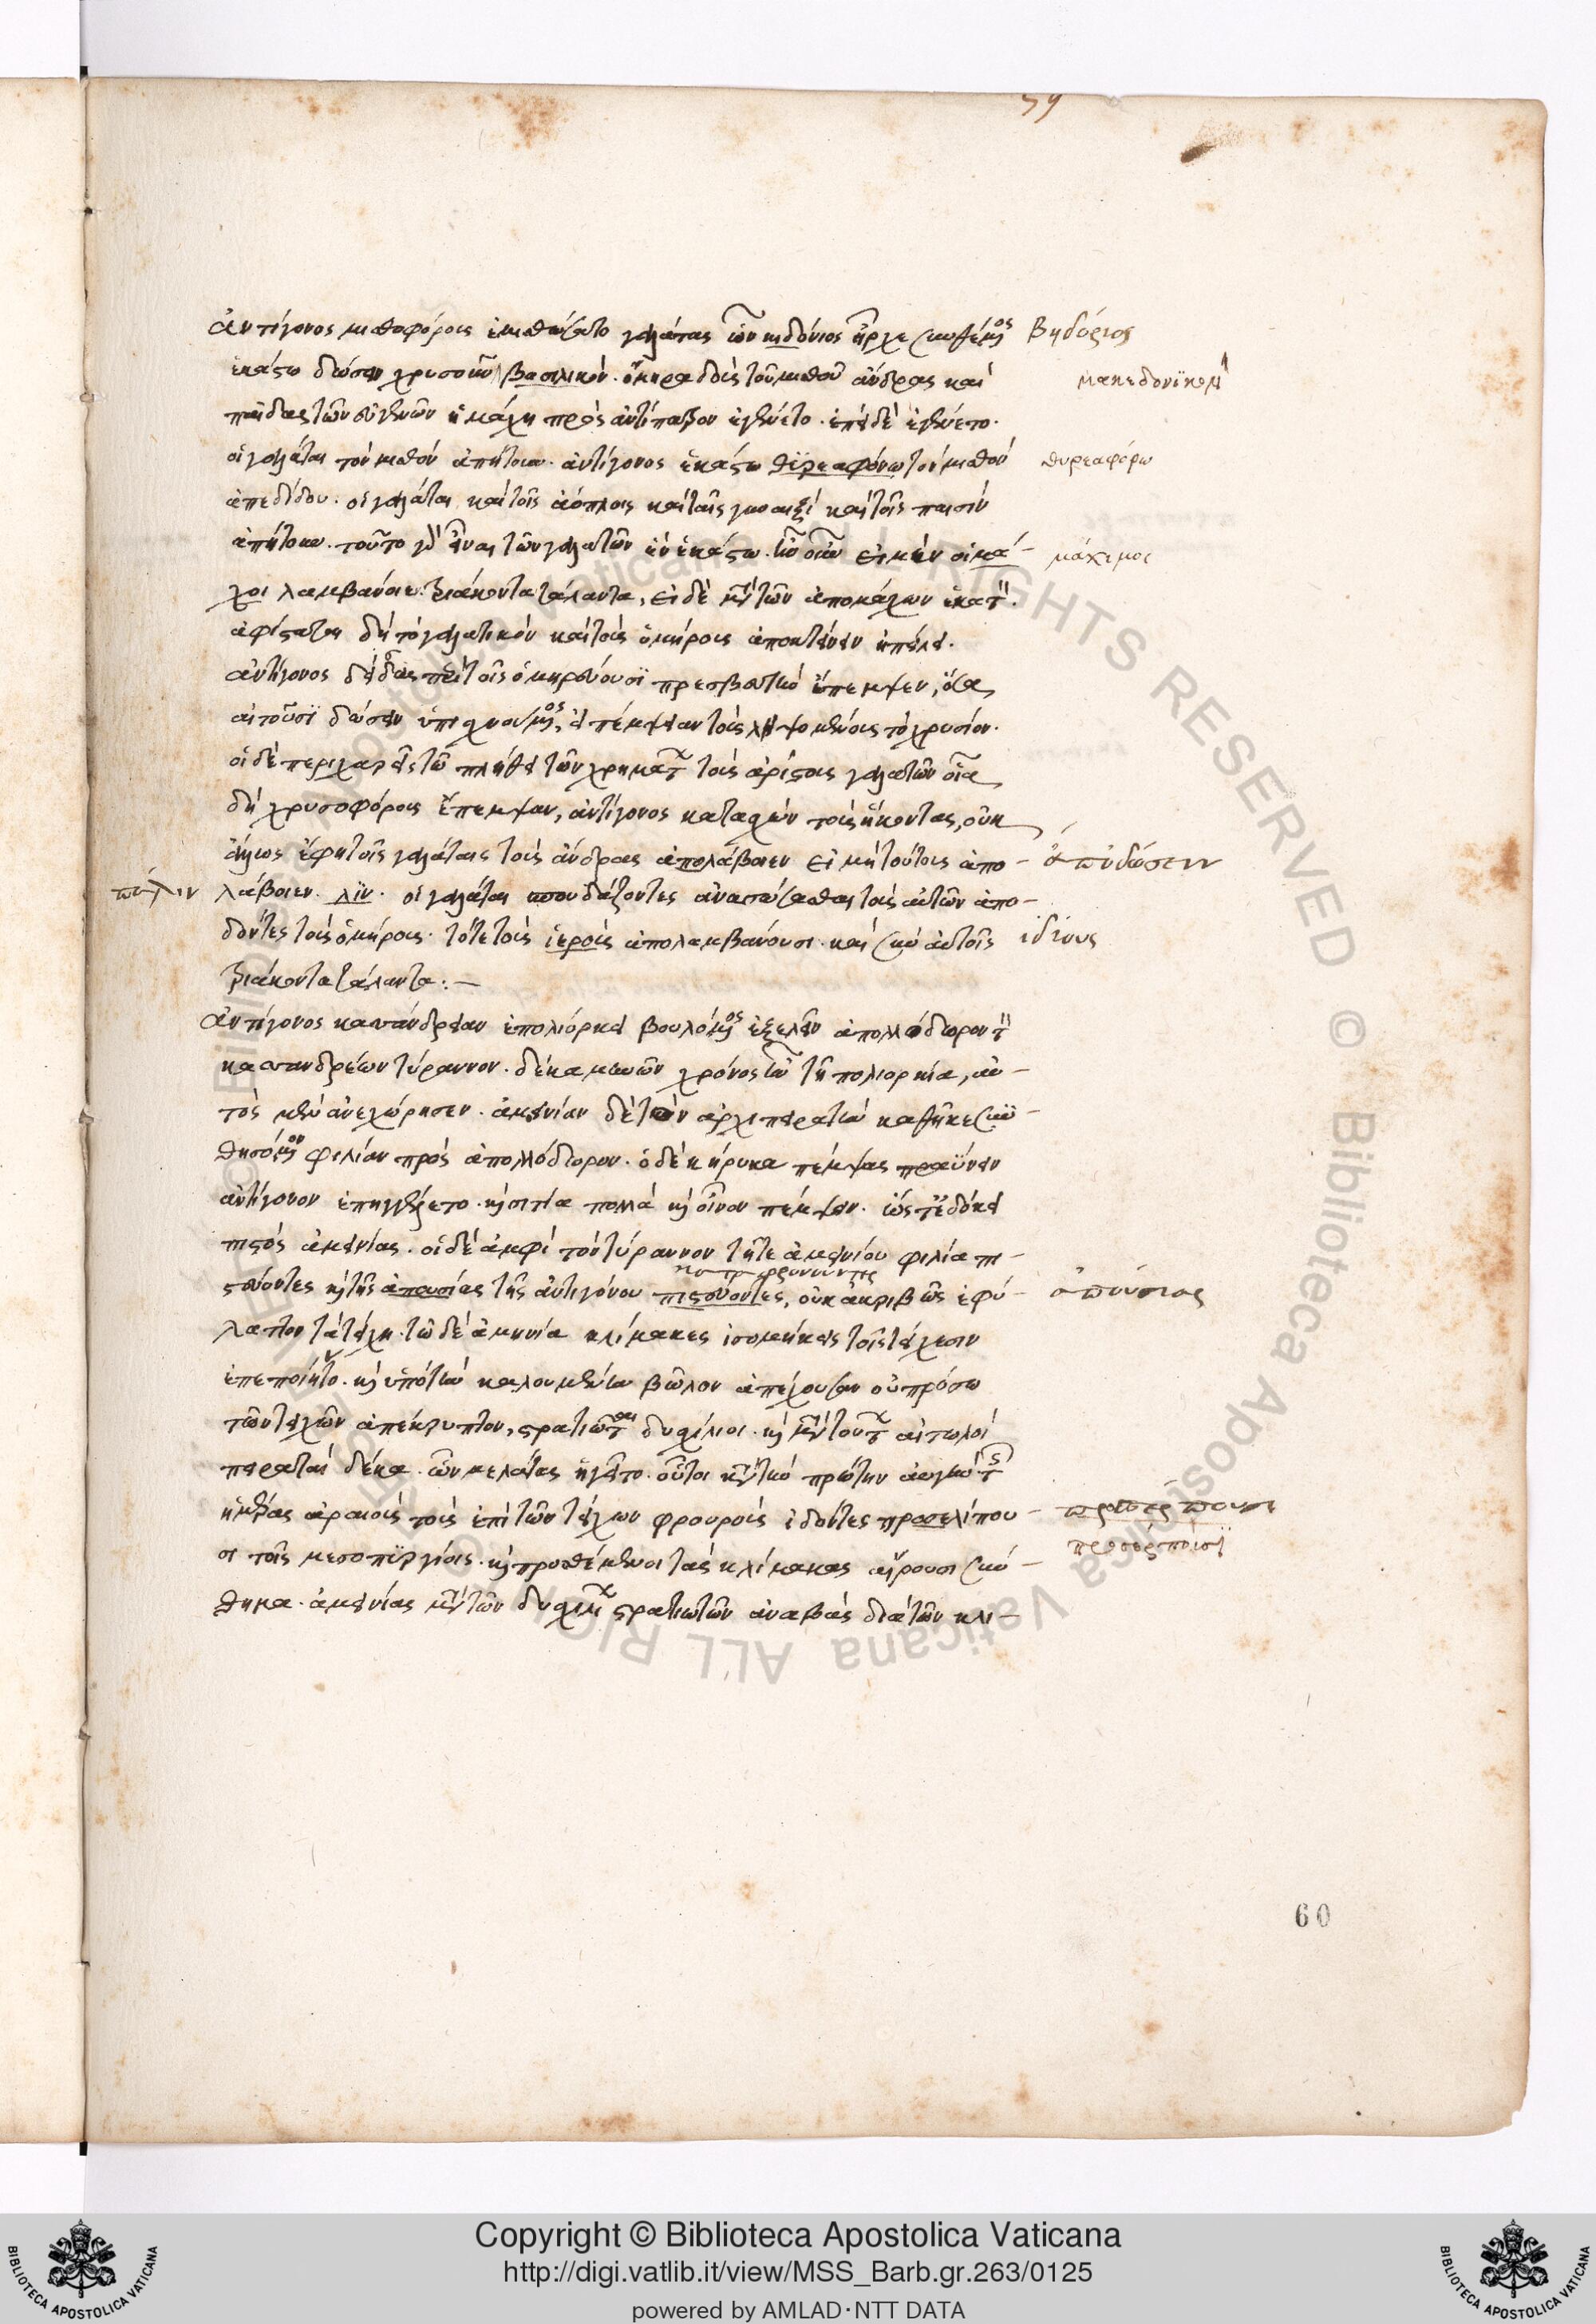 ἀντίγονος μισθοφόροις ἐμισθώσατο γαλάτας ὧν κιδόνιος ἦρχε συνθέμενος Βηδόριος
ἑκάστω δώσειν χρυσοῦν βασιλικόν. ὅμηρα δοὺς τοῦ μισθοῦ ἄνδρας καὶ μακεδονϊκὸν
παῖδας τῶν εὐγενῶν ἡ μάχη πρὸς ἀντίπατρον ἐγένετο. ἐπεὶ δὲ ἐγένετο.
οἱ γαλάται τὸν μισθὸν ἀπήτουν. ἀντίγονος ἑκάστω θϋρεαφόνω τὸν μισθὸν θυρεαφόρω
ἀπεδίδου. οἱ γαλάται καὶ τοῖς ἀόπλοις καὶ ταῖς γυναιξὶ καὶ τοῖς παισὶν
ἀπήτουν. τοῦτο γὰρ εἶναι τῶν γαλατῶν ἐν ἑκάστω. ἦν οὖν εἰ μὲν οἱ μά- μάχιμοι
χοι λαμβάνοιεν τριάκοντα τάλαντα, εἰ δὲ μετὰ τῶν ἀπομάχων ἑκατὸν.
ἀφίσταται δὴ τὸ γαλατικὸν καὶ τοὺς ὁμήρους ἀποκτείνειν ἠπείλει.
ἀντίγονος δείσας περὶ τοῖς ὁμηρεύουσϊ πρεσβευτὴν ἔπεμψεν, ὅσα
αἰτοῦσϊ δώσειν ὑπισχνούμενος, ἃ πέμψειαν τοὺς ληψομένους τὸ χρυσίον.
οἱ δὲ περιχαρεῖς τῶ πλήθει τῶν χρημάτων τοὺς ἀρίστους γαλατῶν οἷα
δὴ χρυσοφόρους ἔπεμψαν, ἀντίγονος κατασχὼν τοὺς ἥκοντας, οὐκ
ἄλλως ἔφη τοῖς γαλάταις τοὺς ἄνδρας ἀπολάβοιεν εἰ μὴ τούτους ἀπο- ἀποδώσειν
πάλιν λάβοιεν. λϊν. οἱ γαλάται σπουδάζοντες ἀνασώσασθαι τοὺς αὐτῶν ἀπο-
δόντες τοὺς ὁμήρους. τότε τοὺς ἱεροὺς ἀπολαμβάνουσι. καὶ σὺν αὐτοῖς ἰδίους
τριάκοντα τάλαντα:—
ἀντίγονος κασάνδρειαν ἐπολιόρκει βουλόμενος ἐξελεῖν ἀπολλόδωρον τὸν
κασσανδρέων τύραννον. δέκα μηνῶν χρόνος ἦν τῆ πολιορκία, αὐ-
τὸς μὲν ἀνεχώρησεν. ἀμεινίαν δὲ τὸν ἀρχιπειρατὴν καθῆκε συν-
θησόμενον φιλίαν πρὸς ἀπολλόδωρον. ὁ δὲ κήρυκα πέμψας πραΰνειν
ἀντίγονον ἐπηγγέλλετο. καὶ σιτία πολλὰ καὶ οἶνον πέμψειν. ὥς τ' ἐδόκει
πιστὸς ἀμεινίας. οἱ δὲ ἀμφὶ τὸν τύραννον τῆ τε ἀμεινίου φιλία πι-
στεύοντες καὶ τῆς ἀπουσίας τῆς ἀντιγόνου πιστεύοντες, οὐκ ἀκριβῶς ἐφύ- ἀπουσίας
λαττον τὰ τείχη. τῶ δὲ ἀμηνία κλίμακες ἰσομήκεις τοῖς τείχεσιν
ἐπεποίηντο. καὶ ὑπὸ τὴν καλουμένην βῶλον ἀπέχουσαν οὐ πρόσω
τῶν τειχῶν ἀπεκρύπτον, στρατιῶται δισχίλιοι. καὶ μετὰ τούτων αἰτωλοὶ
πειραταὶ δέκα. ὧν μελάτας ἡγεῖτο. οὗτοι κατὰ τὴν πρώτην αὐγὴν τῆς
ἡμέρας ἀραιοὺς τοὺς ἐπὶ τῶν τείχων φρουροὺς ἰδόντες προσελίπου- προσέρπουσι
σι τοῖς μεσοπϋργίοις. καὶ προσθέμενοι τὰς κλίμακας αἴρουσι σύν- προσέρπουσϊ
θημα. ἀμεινίας μετὰ τῶν δισχιλίων στρατιωτῶν ἀναβὰς διὰ τῶν κλι-
60
Copyright © Biblioteca Apostolica Vaticana
http://digi.vatlib.it/view/MSS_Barb.gr.263/0125
powered by AMLAD·NTT DATA